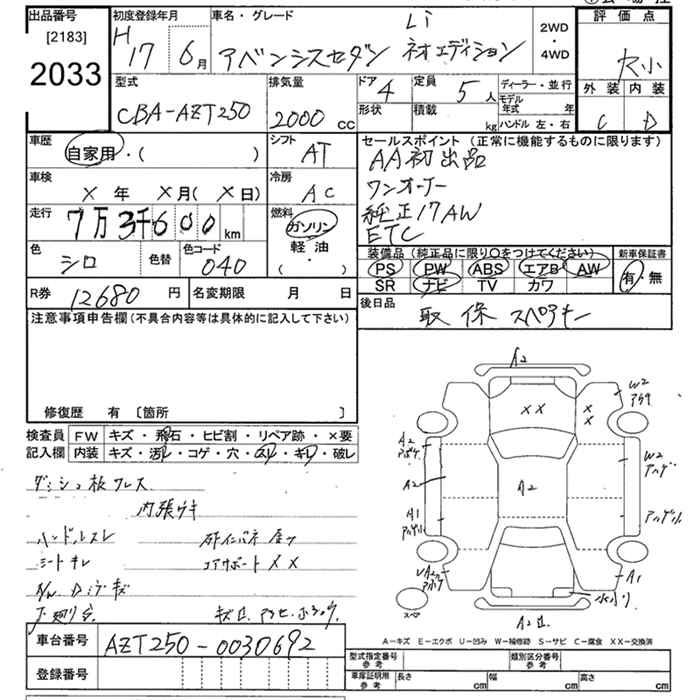 出品番号
[2183]
2033
初度登録年月
H
17 6月
車名・グレード
Li
アベンシスセダン ネオエディション
2WD
・
4WD
評価点
外装 内装
C D
型式
CBA-AZT250
排気量
2000 cc
ドア
4
形状
定員
5人
積載
kg
ディーラー・並行
モデル年式 年
ハンドル 左・右
車歴
自家用・( )
シフト
AT
セールスポイント (正常に機能するものに限ります)
AA初出品
ワンオーナー
純正17AW
ETC
車検
X 年 X 月( X 日)
冷房
AC
走行
7万3千600 km
燃料
ガソリン
軽・油
( ・ )
色
シロ
色替
色コード
040
装備品 (純正品に限り○をつけてください)
PS PW ABS エアB AW
SR ナビ TV カワ
新車保証書
有・無
R券 12680 円
名変期限 月 日
後日品
取 保 スペアキー
注意事項申告欄(不具合内容等は具体的に記入して下さい)
修復歴 有 〔箇所 〕
検査員
記入欄
FW キズ・飛石・ヒビ割・リペア跡・×要
内装 キズ・汚レ・コゲ・穴・スレ・キレ・破レ
内張ウキ
ハンドルスレ
シートキレ
コアサポートXX
A2
W2
XX
X
X
A2
W2
A2
A2
A1
A1
スペア
A-キズ E-エクボ U-凹み W-補修跡 S-サビ C-腐食 XX-交換済
車台番号
AZT250-0030692
登録番号
型式指定番号
参考
類別区分番号
参考
車庫証明用
参考
長さ cm
幅 cm
高さ cm